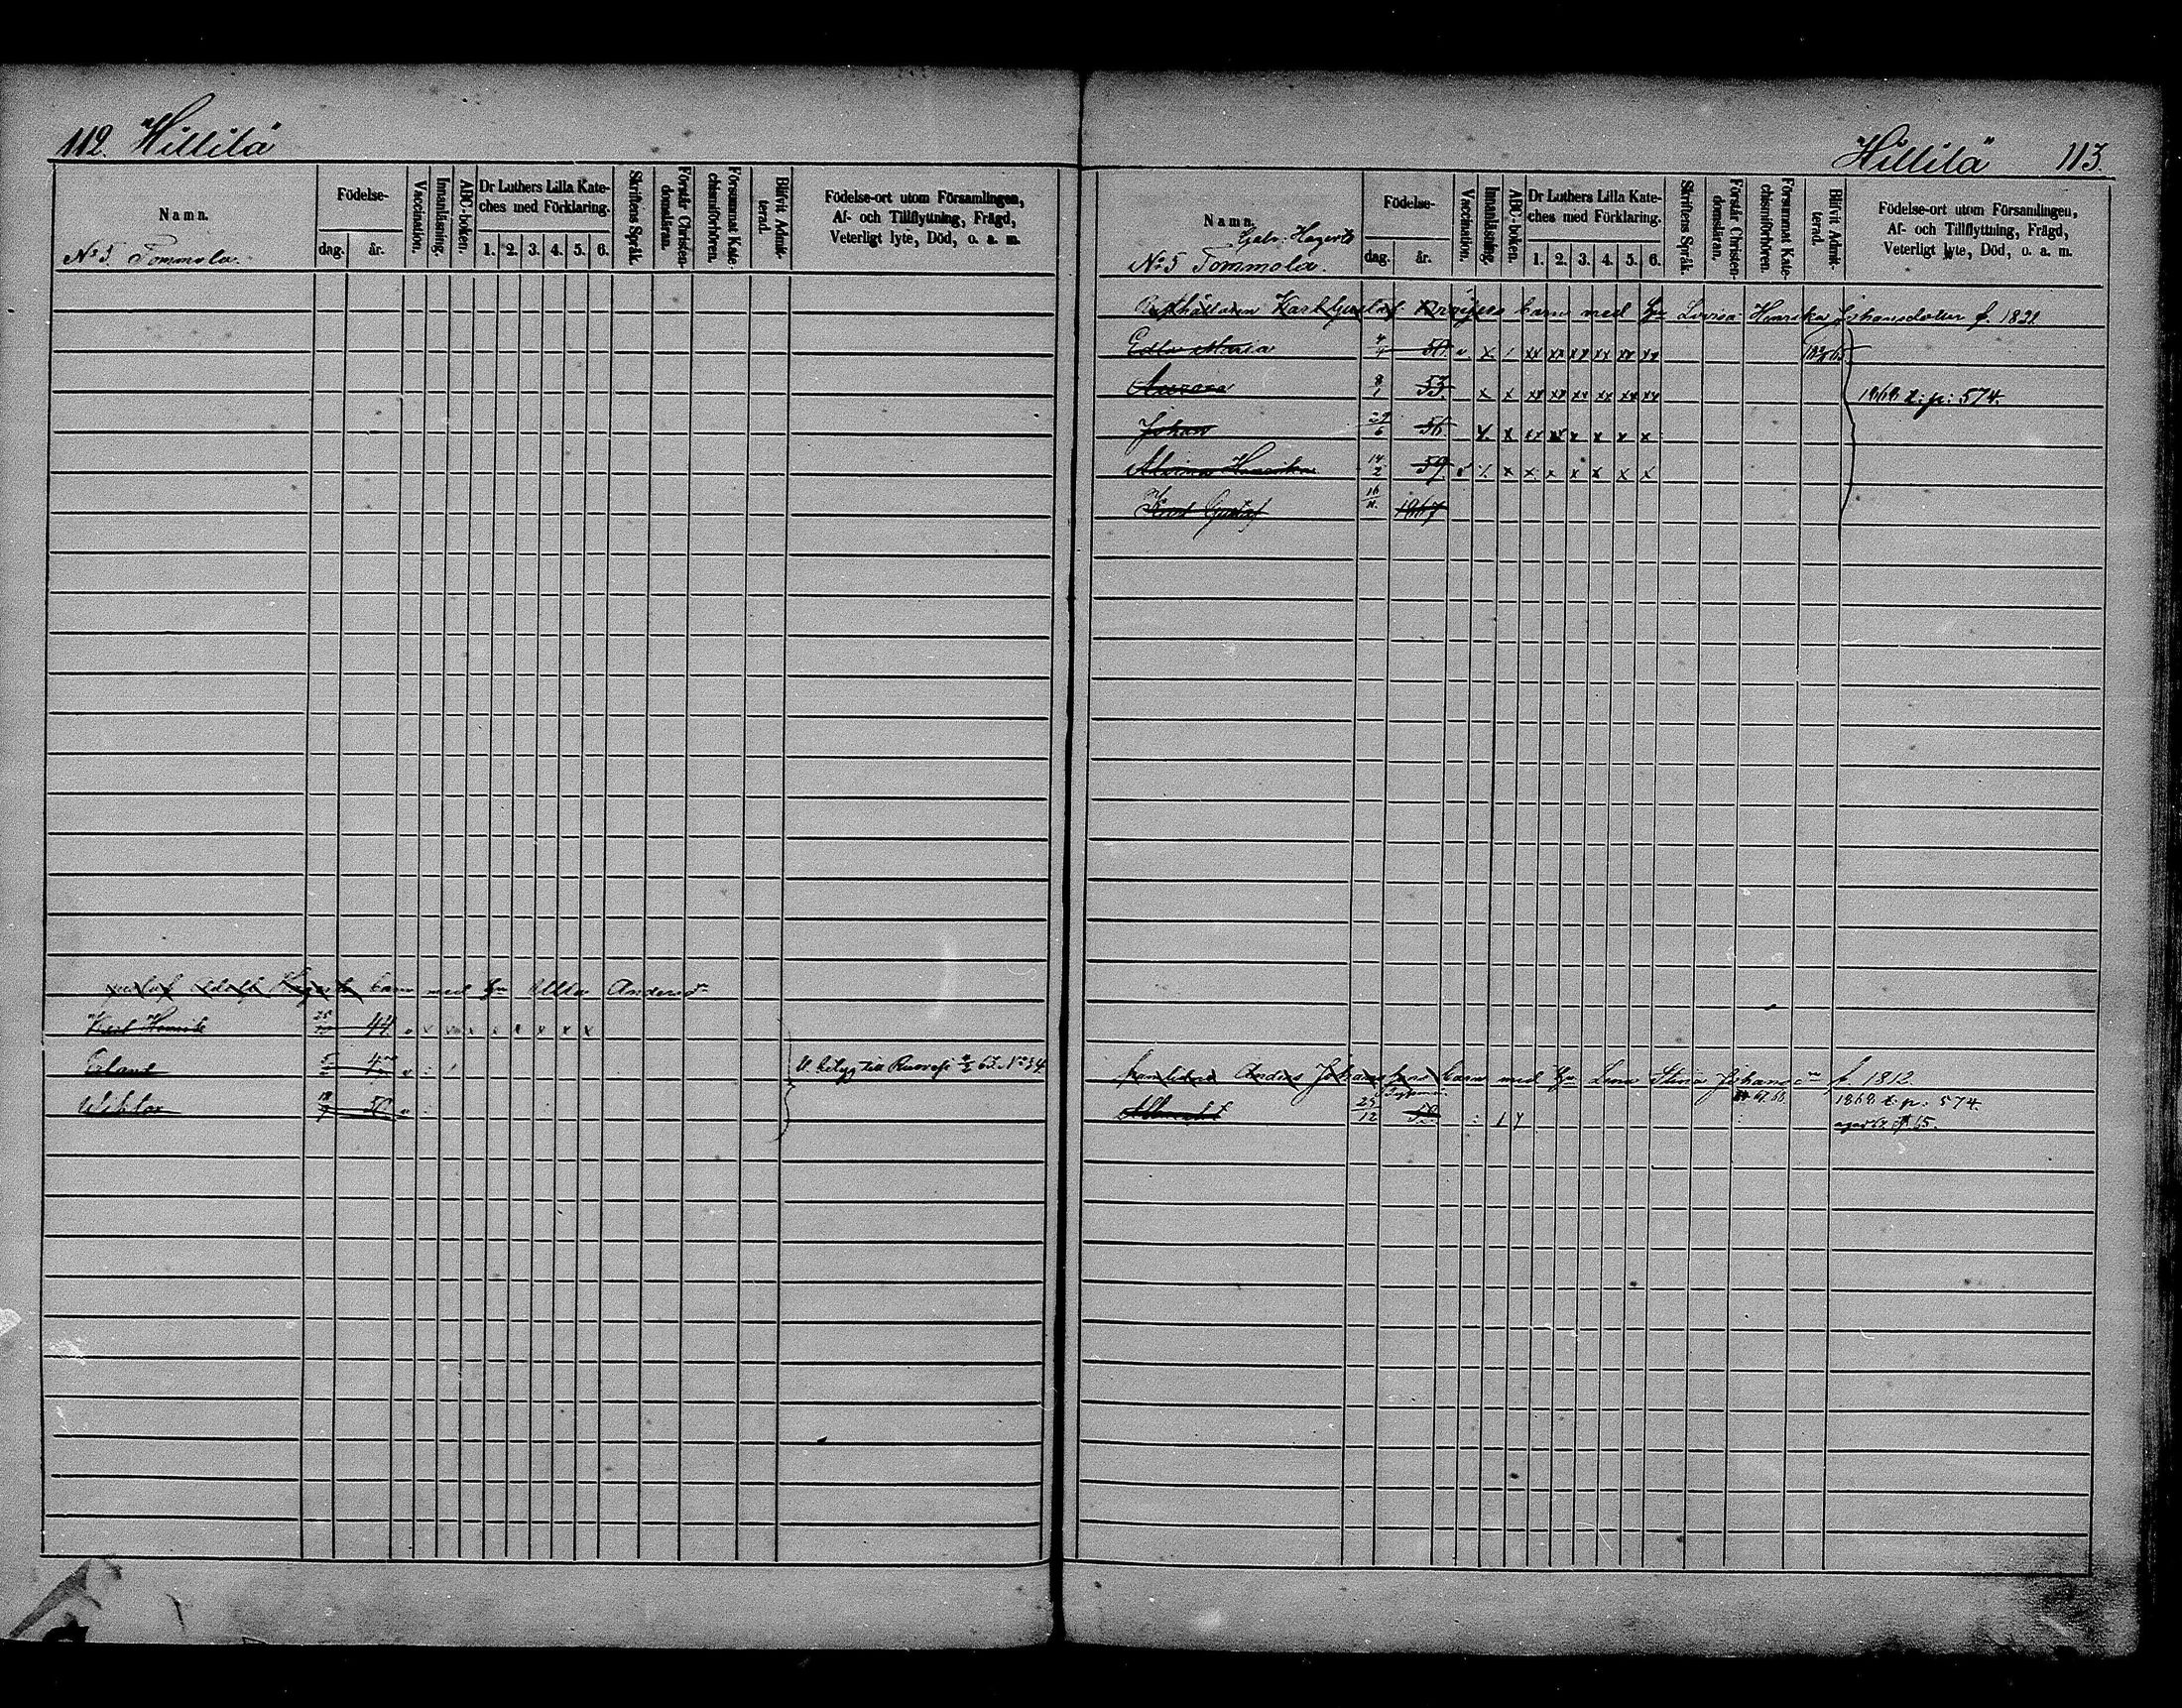 112. "Hillilä"
Namn.
N:o 5. Tommola.
Födelse-
dag. år.
Vaccination.
Innanläsning.
ABC-boken.
Dr Luthers Lilla Kate-
ches med Förklaring.
1. 2. 3. 4. 5. 6.
Skriftens Språk.
Förstår Christen-
domsläran.
Försummat Kate-
chismiförhören.
Blifvit Admit-
terad.
Födelse-ort utom Församlingen,
Af- och Tillflyttning, Frägd,
Veterligt lyte, Död, o. a. m.
barn med Hu Ulla Andersdr
Karl Henrik 25 44 x x x x x x x x
Erland 5
Wiktor 18 50
till N:o 34
"Hillilä" 113.
Namn.
Galv: Hagert
N:o 5 Tommola.
Födelse-
dag. år.
Vaccination.
Innanläsning.
ABC-boken.
Dr Luthers Lilla Kate-
ches med Förklaring.
1. 2. 3. 4. 5. 6.
Skriftens Språk.
Förstår Christen-
domsläran.
Försummat Kate-
chismiförhören.
Blifvit Admit-
terad.
Födelse-ort utom Församlingen,
Af- och Tillflyttning, Frägd,
Veterligt lyte, Död, o. a. m.
Rusthållaren Karl Gustaf barn med Hu Lovisa Henrika Johansdotter f. 1821
Edla Maria 4/4 50 x xx xx xx xx xx xx
Aurora 8/1 53. x x xx xx xx xx xx xx 1868 t: p: 574.
Johan 56 x x xx x x x x
Henrika 14/2 59 x x x x x x x
Karl Gustaf 1867
Anders Johansson barn med Hu Lena Stina Johansdr f. 1812.
Albrecht 25/12 52 1868 t: p: 574.